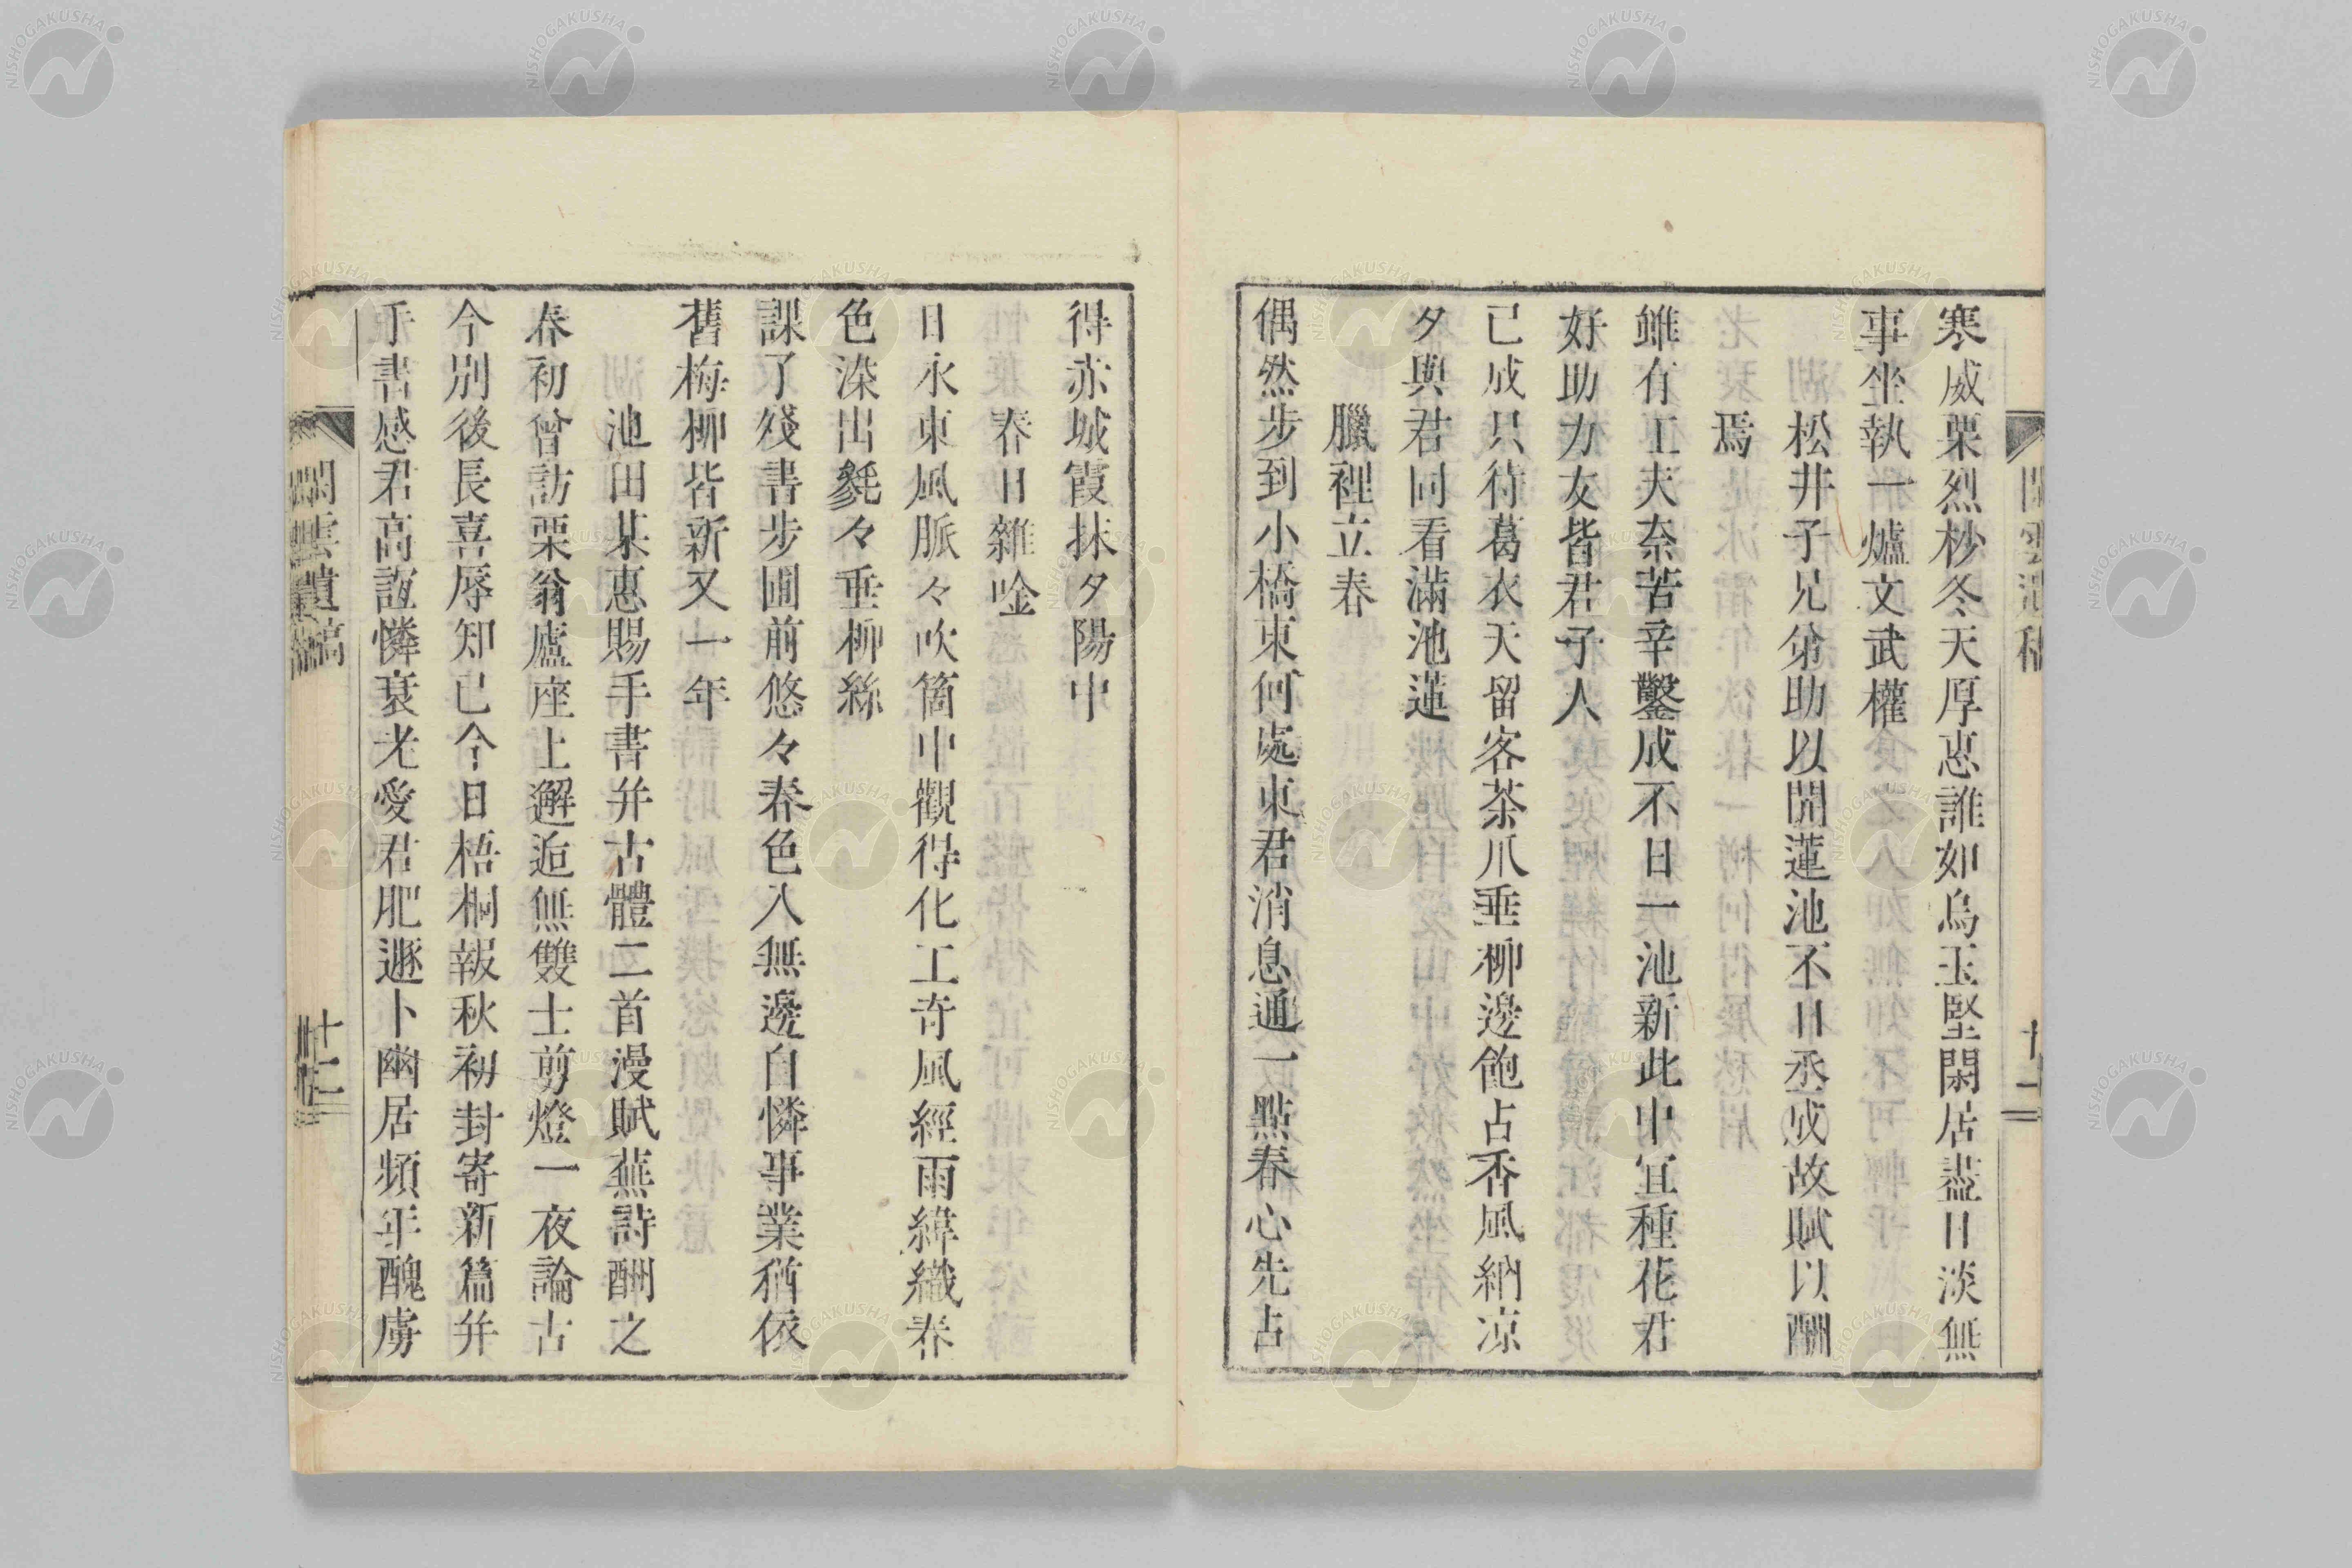 寒威栗烈杪冬天厚惠誰如烏玉堅閑居盡日淡無
事坐執一爐文武權
松井子兄弟助以開蓮池不日丞成故賦以酬
焉
雖有工夫奈苦辛鑿成不日一池新此中宜種花君
好助力友皆君子人
已成只待葛衣天留客茶爪垂柳邊飽占香風納凉
夕與君同看滿池蓮
臘裡立春
偶然步到小橋東何處東君消息通一點春心先占
得赤城霞抹夕陽中
春日雜唫
日永東風脈々吹箇中觀得化工奇風經雨緯織春
色染出毿々垂柳絲
課了殘書步圃前悠々春色入無邊自憐事業猶依
舊梅柳皆新又一年
池田某惠賜手書并古體二首漫賦蕪詩酬之
春初曾訪栗翁廬座上邂逅無雙士剪燈一夜論古
今別後長喜辱知已今日梧桐報秋初封寄新篇并
手書感君高誼憐衰老愛君肥遯卜幽居頻年醜虜
閑雲遺稿
十二
NISHOGAKUSHA